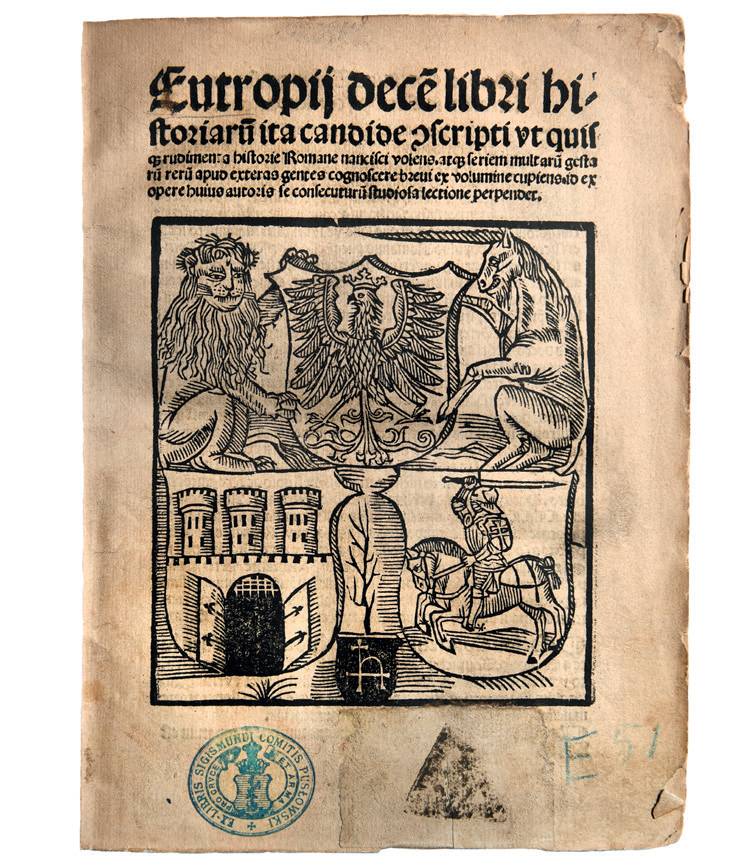 Eutropij decē libri hi⸗
storiarū ita candide ꝯscripti vt quis
qꝫ rudimenta historie Romane nancisci volens. atqꝫ seriem multarū gesta
rū rerū apud exteras gentes cognoscere breui ex volumine cupiens. id ex
opere huius autoris se consecuturū studiosa lectione perpendet.
EX-LIBRIS SIGISMUNDI COMITIS PUSŁOWSKI
PRO CRVCE ET ARMA
E 51